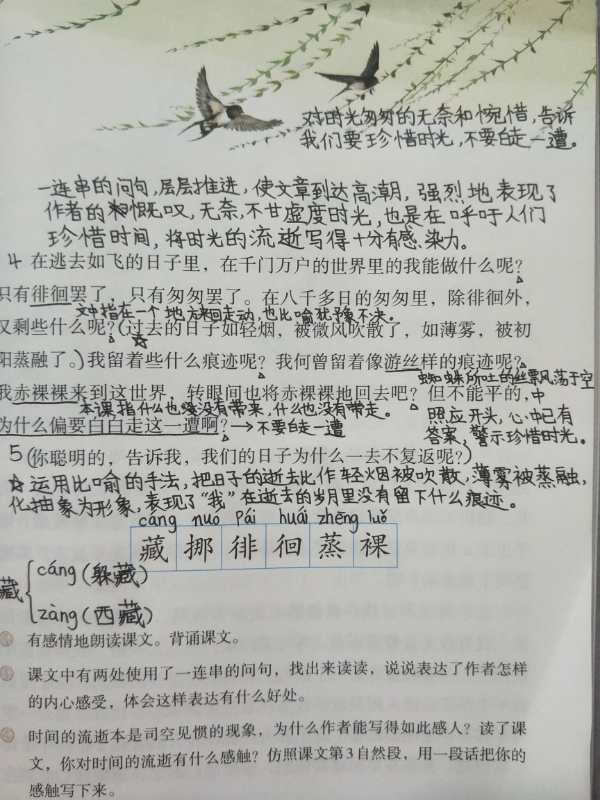 对时光匆匆的无奈和惋惜,告诉
我们要珍惜时光,不要白走一遭。
一连串的问句,层层推进,使文章到达高潮,强烈地表现了
作者的慨叹,无奈,不甘虚度时光,也是在呼吁人们
珍惜时间,将时光的流逝写得十分有感染力。
4 在逃去如飞的日子里,在千门万户的世界里的我能做什么呢?
只有徘徊罢了,只有匆匆罢了。在八千多日的匆匆里,除徘徊外,
文中指在一个地方来回走动,也比喻犹豫不决。
又剩些什么呢?(过去的日子如轻烟,被微风吹散了,如薄雾,被初
阳蒸融了。)我留着些什么痕迹呢?我何曾留着像游丝样的痕迹呢?
蜘蛛所吐的丝飘荡于空
中
我赤裸裸来到这世界,转眼间也将赤裸裸地回去吧?但不能平的,
本课指什么也没有带来,什么也没有带走。
为什么偏要白白走这一遭啊?→不要白走一遭
照应开头,心中已有
答案,警示珍惜时光。
5 (你聪明的,告诉我,我们的日子为什么一去不复返呢?)
☆运用比喻的手法,把日子的逝去比作轻烟被吹散,薄雾被蒸融,
化抽象为形象,表现了“我”在逝去的岁月里没有留下什么痕迹。
cáng nuó pái huái zhēng luǒ
藏 挪 徘 徊 蒸 裸
藏
cáng (躲藏)
zàng (西藏)
有感情地朗读课文。背诵课文。
课文中有两处使用了一连串的问句,找出来读读,说说表达了作者怎样
的内心感受,体会这样表达有什么好处。
时间的流逝本是司空见惯的现象,为什么作者能写得如此感人?读了课
文,你对时间的流逝有什么感触?仿照课文第3自然段,用一段话把你的
感触写下来。